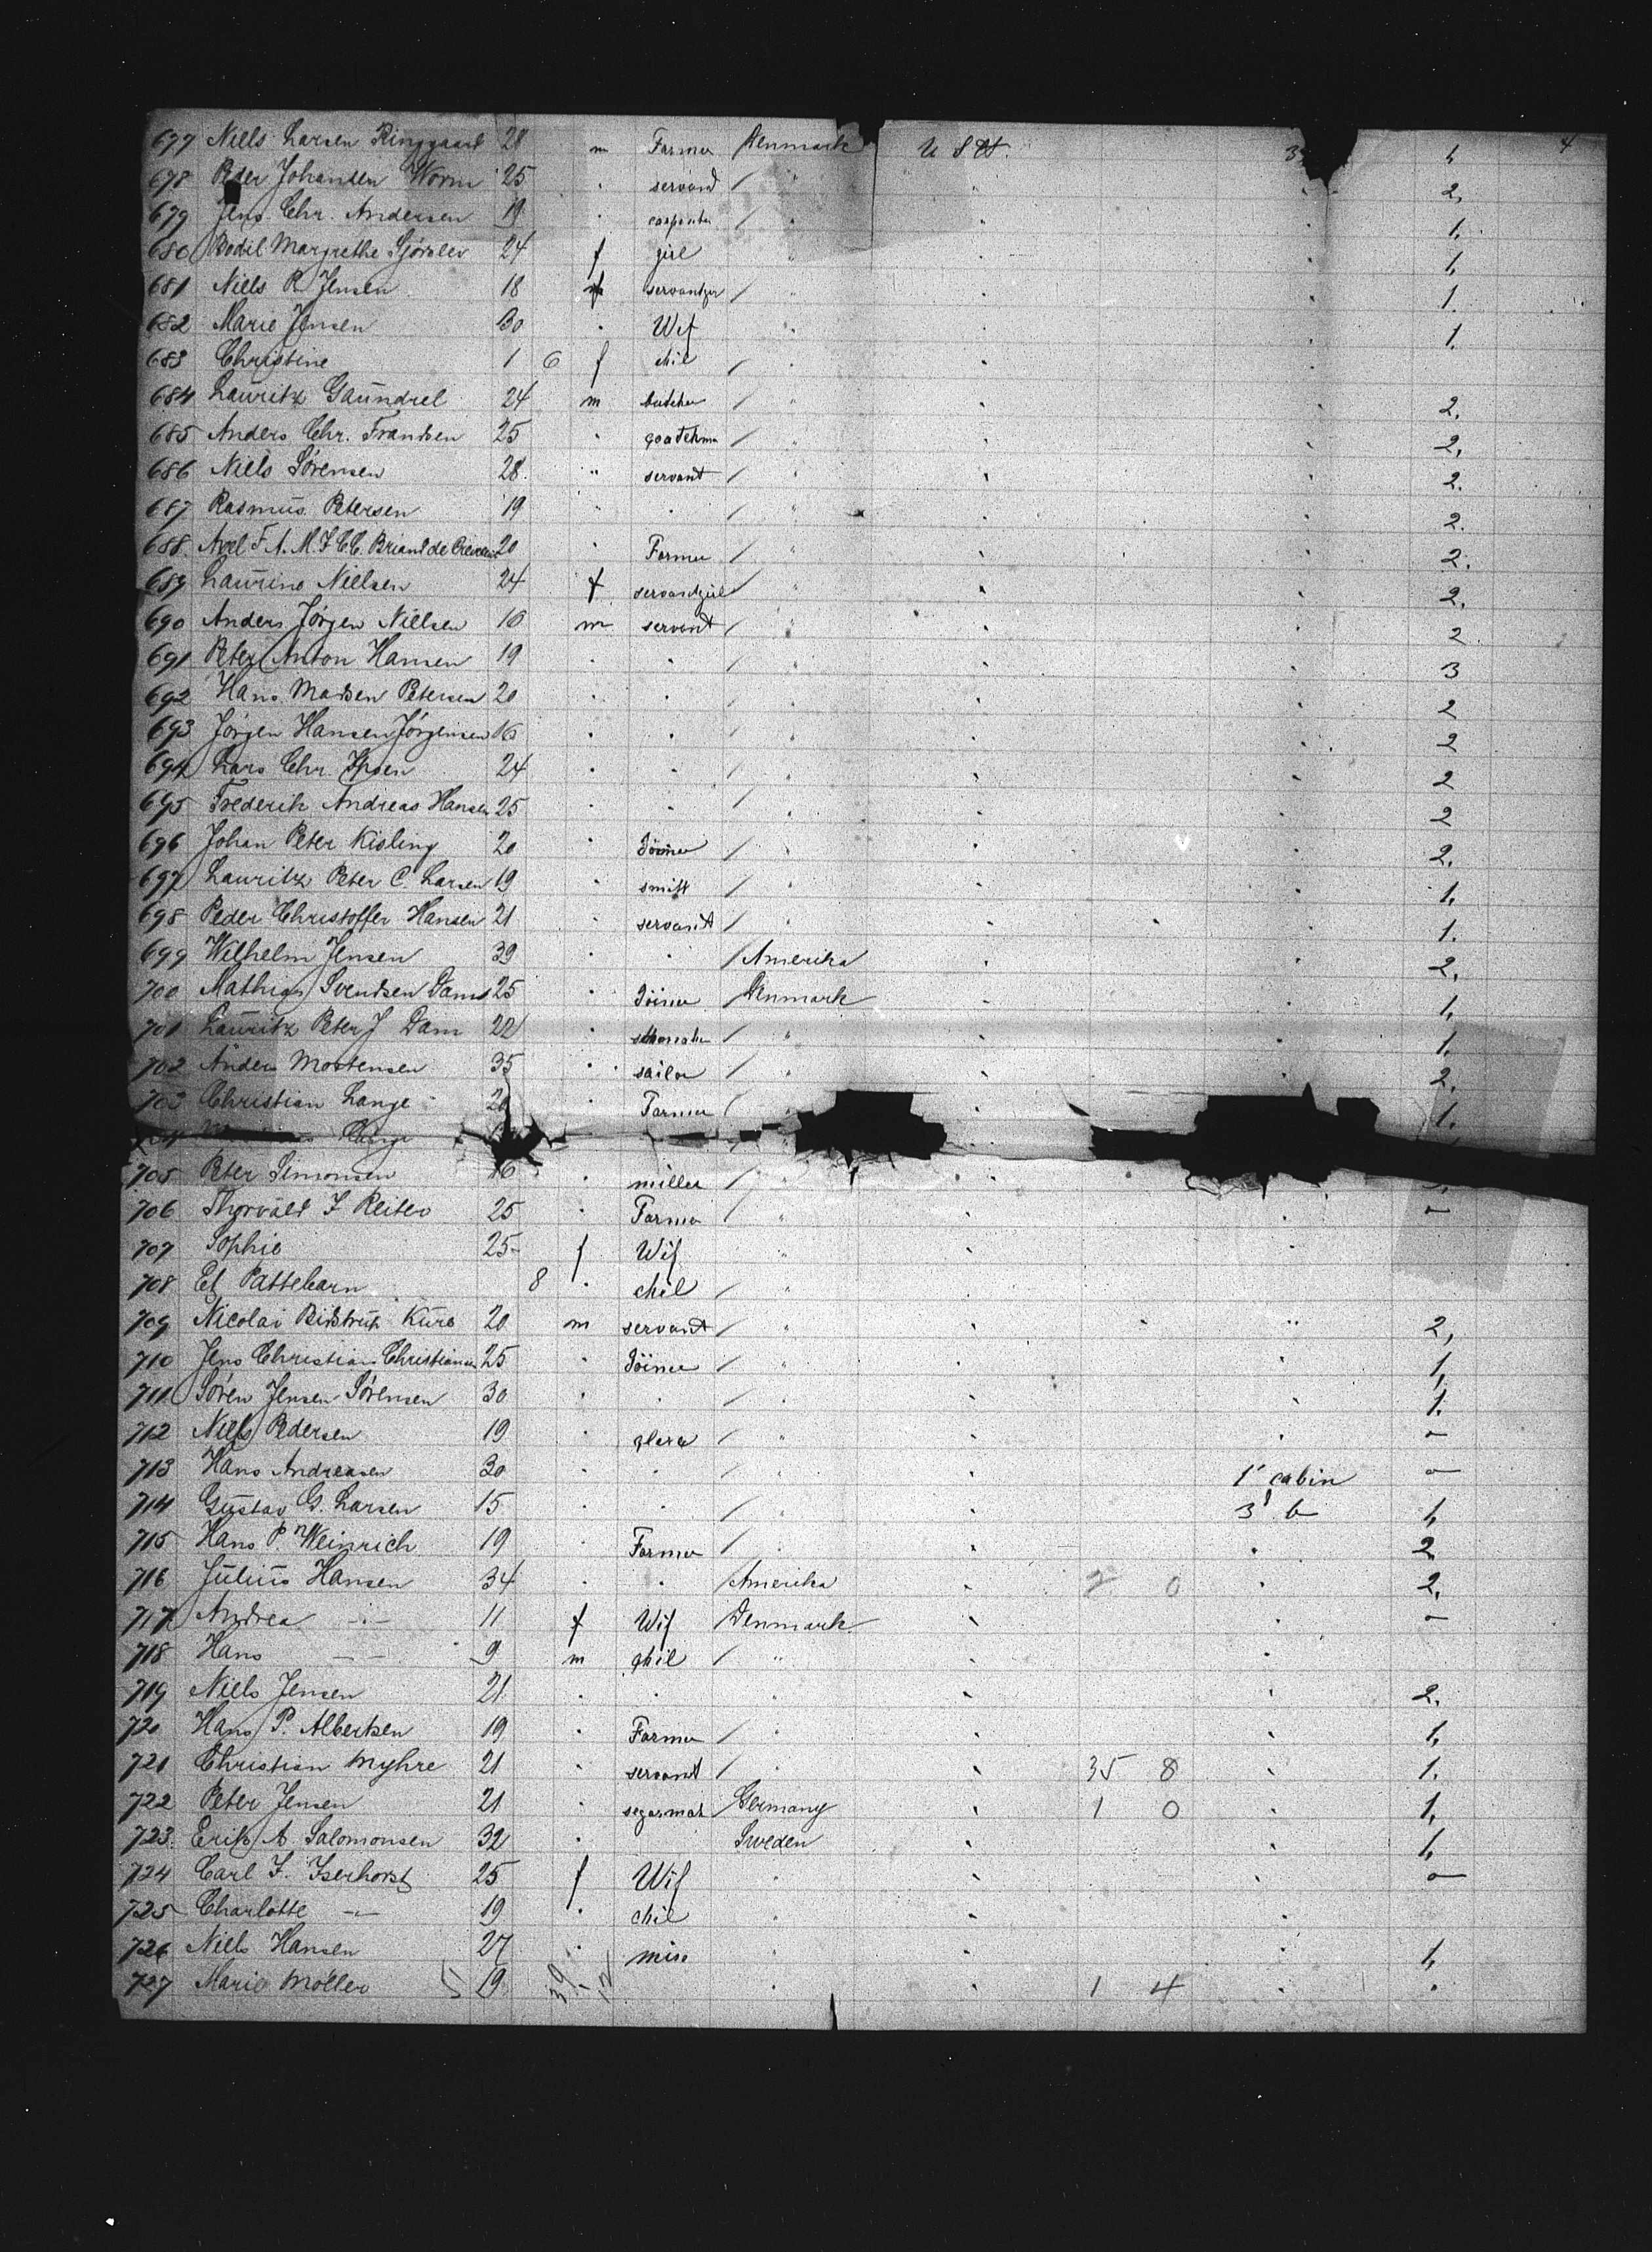 4
677 Niels Larsen Ringgaard 28 m Farmer Denmark U S A. 3 1,
678 Peder Johansen Worm 25 " servand / " " 2,
679 Jens Chr. Andersen 19 " carpenter / " " 1.
680 Bodil Margrethe 24 f girl " " 1,
681 Niels R Jensen 18 servantger / " " 1.
682 Marie Jensen 30 " Wif " " 1.
683 Christine 1 6 f chil / " "
684 Lauritz Gaundrel 24 m butcher / " " 2.
685 Anders Chr. Frandsen 25 " / " " 2,
686 Niels Sørensen 28 " servant / " " 2.
687 Rasmus Petersen 19 " " / " " 2.
688 Axel F. A. M. F. C. C. Briand de 20 " Farmer / " " 2.
689 Laurine Nielsen 24 f servandgirl / " " 2.
690 Anders Jörgen Nielsen 16 m servent / " " 2
691 Peter Anton Hansen 19 " " / " " 3
692 Hans Madsen Petersen 20 " " / " " 2
693 Jörgen Hansen Jörgensen 16 " " / " " 2
694 Lars Chr. Ipsen 24 " " / " " 2
695 Frederik Andreas Hansen 25 " " / " " 2
696 Johan Peter Kisling 20 " Döiner / " " 2.
697 Lauritz Peter C. Larsen 19 " smitt / " " 1.
698 Peder Christoffer Hansen 21 " servant / " " 1.
699 Wilhelm Jensen 39 " " Amerika " " 2.
700 Mathias Svendsen Dam 25 " Döiner Denmark " " 1,
701 Lauritz Peter J Dam 22 " / " " 1.
702 Anders Mortensen 35 " sailor / " " 2.
703 Christian Lange 20 " Farmer / " " 1.
Lange
705 Peter Simonsen 16 " miller / " "
706 Thorvald F Reiter 25 " Farmer / " " -
707 Sophie 25 f Wif " " "
708 Et Pattebarn 8 " chil / " "
709 Nicolai Bidstrup Kure 20 m servant / " " " 2,
710 Jens Christian Christiansen 25 " Döiner / " " 1,
711 Sören Jensen Sörensen 30 " " / " " 1.
712 Niels Pedersen 19 " / " " -
713 Hans Andreasen 30 " " / " 1' cabin -
714 Gustav G. Larsen 15 " " / " 3' b 1,
715 Hans P. Weinrich 19 " Farmer / " " 2
716 Julius Hansen 34 " " Amerika " 2 0 " 2.
717 Andrea -"- 11 f Wif Denmark " " -
718 Hans - - 9 m chil / " " "
719 Niels Jensen 21 " " " " " 2.
720 Hans P. Albertsen 19 " Farmer / " " 1,
721 Christian Myhre 21 " servant / " 35 8 " 1.
722 Peter Jensen 21 " segarmak Germany " 1 0 " 1,
723. Erik A. Salomonsen 32 " Sweden " " 1,
724 Carl F. Iserhorst 25 f Wif " " " -
725 Charlotte -"- 19 " chil " "
726 Niels Hansen 27 " miss " " 1,
727 Marie Möller 19 " " 1 4 " "